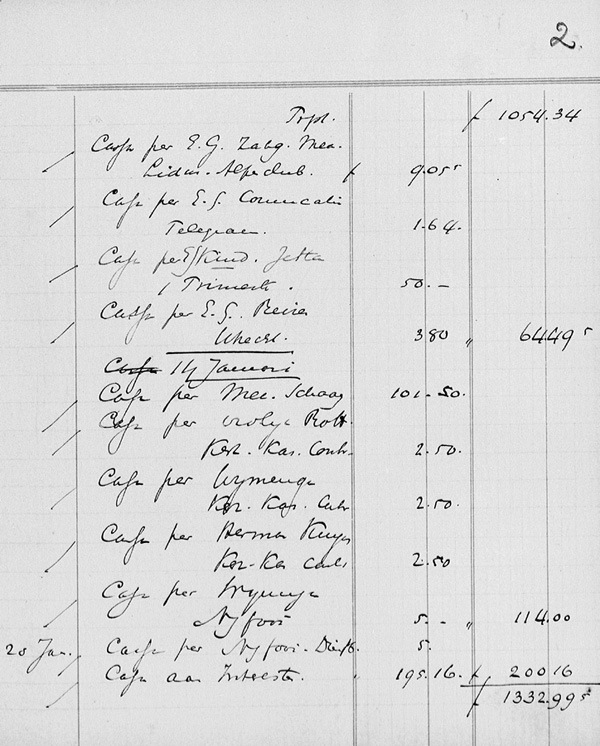 2.
Trpt. f 1054.34
Cassa per E.G. Zang. Mea.
Lidm. Alpeclub. f 9.05⁵
Cassa per E.G. Comuncatie
Telegram. 1.64.
Cassa per E/Kind. Jetta
1 Trimestr. 50.-
Cassa per E.G. Reis
Utrecht. 3 80 " 64.49⁵
Cassa 14 Januari
Cassa per Mee. Schaay 101-50.
Cassa per Rott.
Ker. Kas. Contr. 2.50.
Cassa per Wymenga
Ker. Kas. Contr 2.50.
Cassa per Herman Kuyper
Ker-Kas Contr 2.50
Cassa per Wymenga
Nyfooi 5.- " 114.00
20 Jan. Cassa per Nyfooi-Dienstb. 5.
Cassa aan Interester. " 195.16. f 200 16
f 1332.99⁵